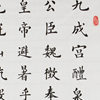 九成宮醴泉
公臣魏徵奉
皇帝避暑乎